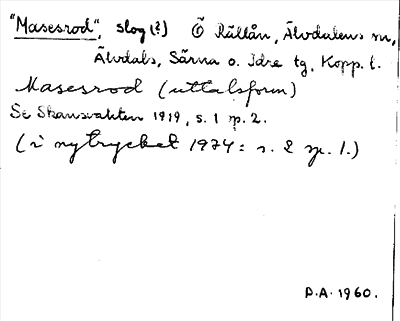 "Masesrod", slog (?) Ö Rällån, Älvdalens sn,
Älvdals, Särna o. Idre tg, Kopp. l.
Masesrod (uttalsform)
Se Skansvakten 1919, s. 1 sp. 2.
(i nytrycket 1974: s. 2 sp. 1.)
D.A. 1960.